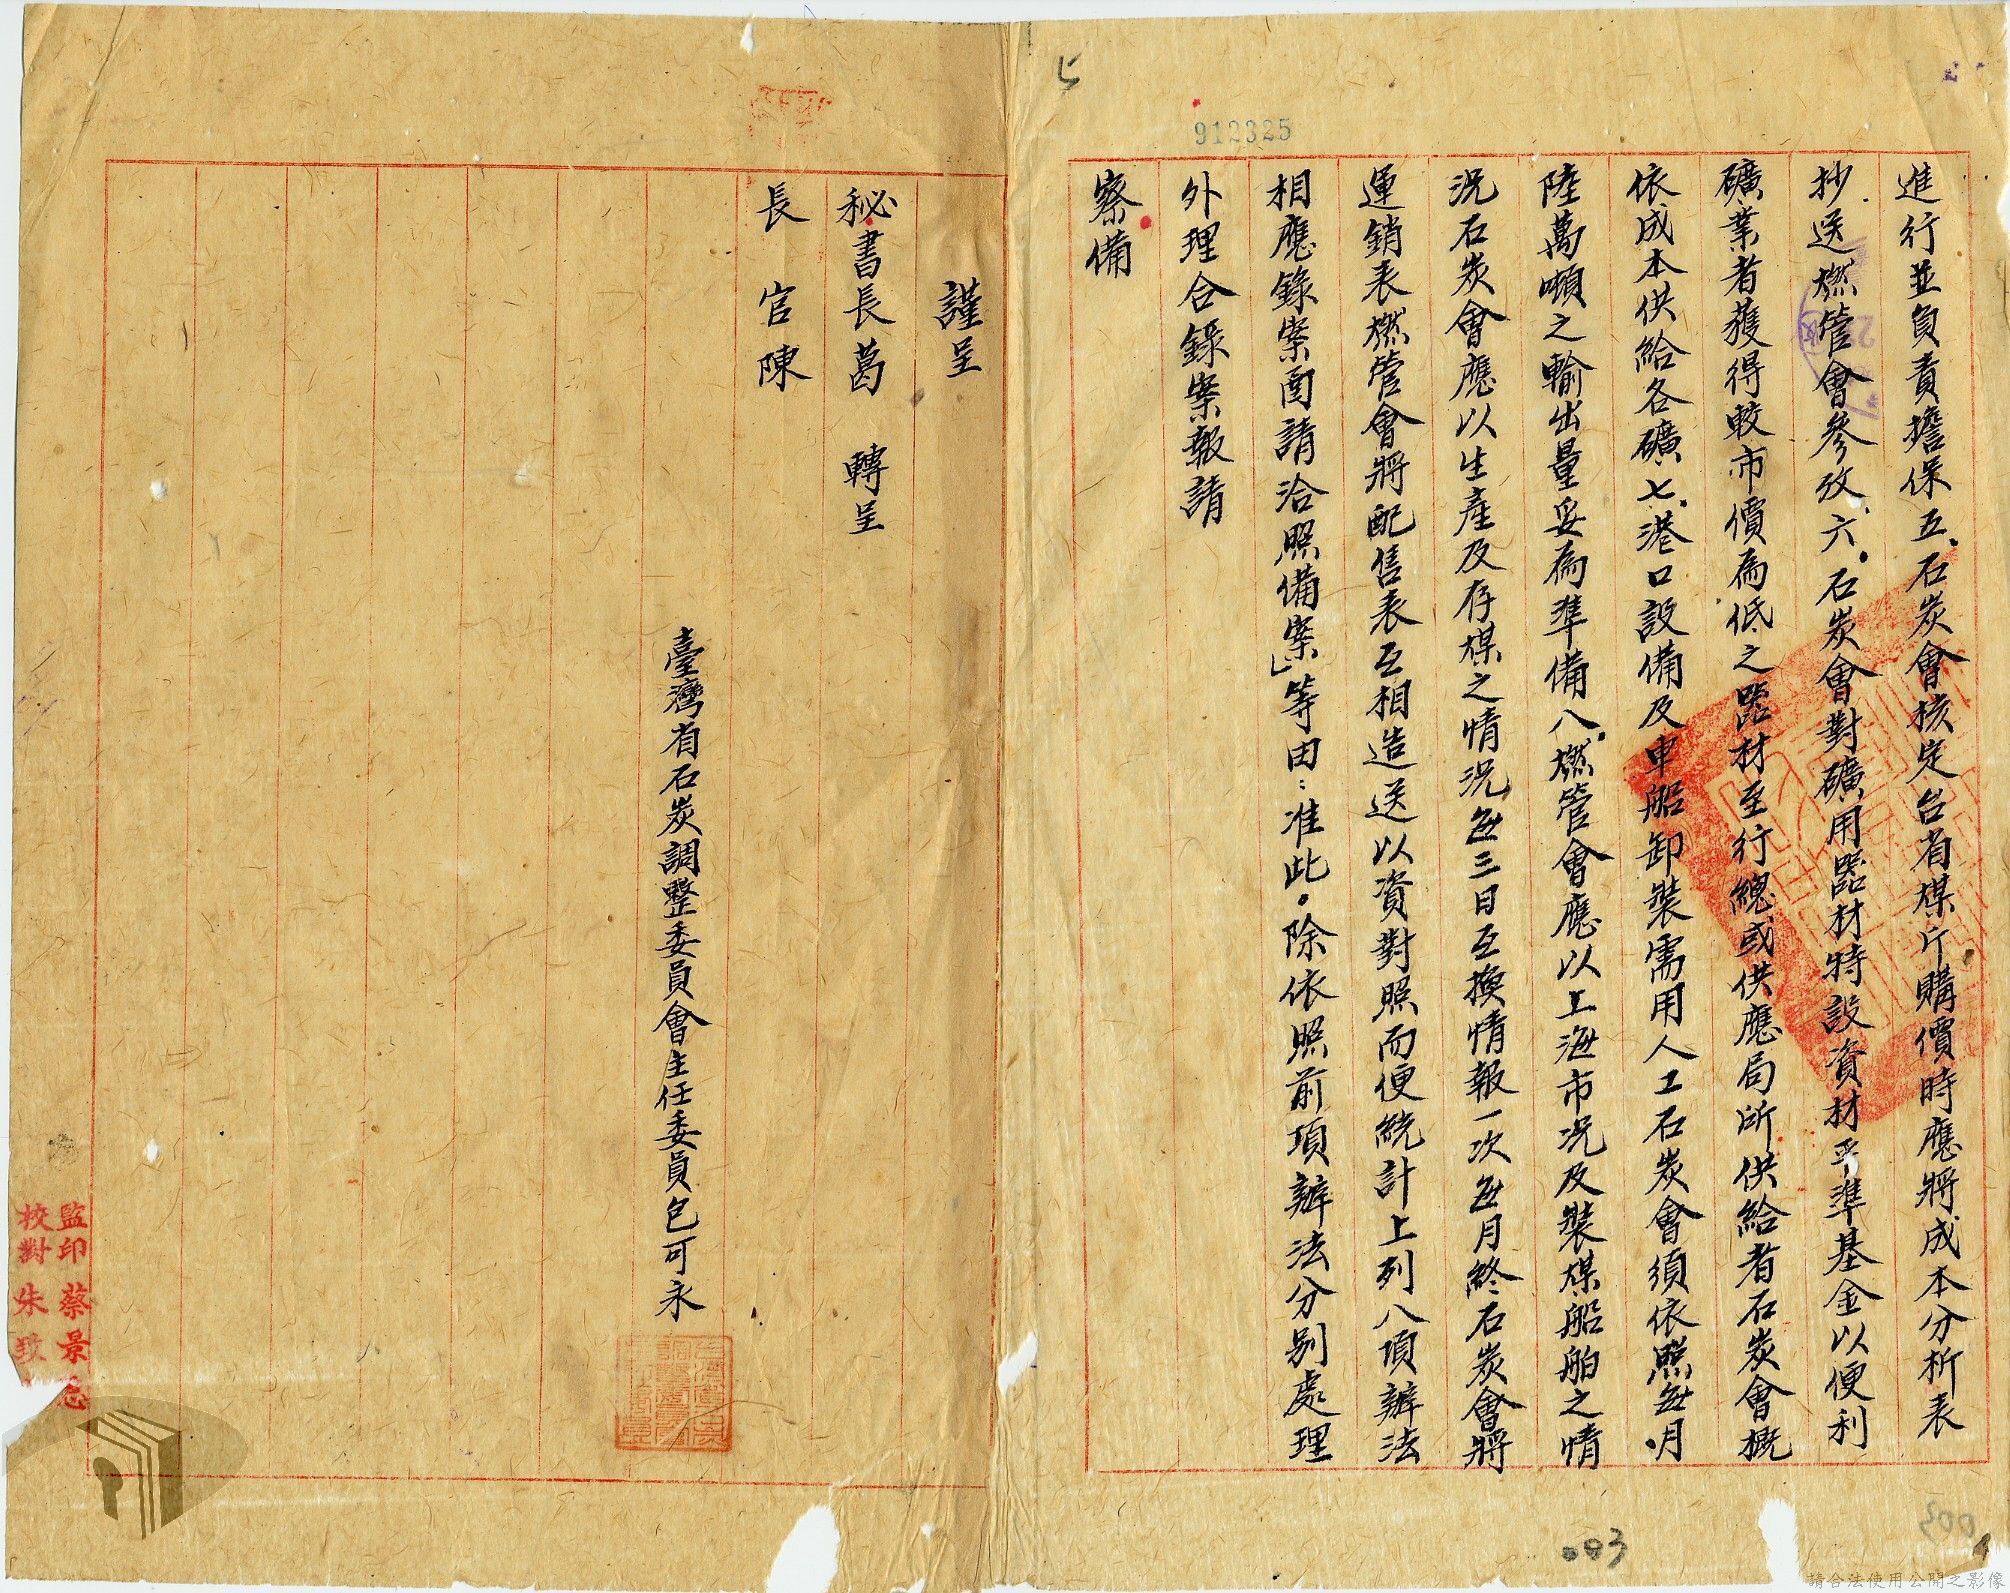 912325
進行並負責擔保五.石炭會核定台省煤斤購價時應將成本分析表
抄送燃管會參攷六.石炭會對礦用器材特設資材平準基金以便利
礦業者獲得較市價為低之器材至行總或供應局所供給者石炭會概
依成本供給各礦七.港口設備及車船卸裝需用人工石炭會須依照每月
陸萬噸之輸出量妥為準備八.燃管會應以上海市況及裝煤船舶之情
況石炭會應以生產及存煤之情況每三日互換情報一次每月終石炭會將
運銷表燃管會將配售表互相造送以資對照而便統計上列八項辦法
相應錄案函請洽照備案」等由：准此。除依照前項辦法分別處理
外理合錄案報請
察備
謹呈
秘書長葛 轉呈
長官陳
臺灣省石炭調整委員會主任委員包可永
監印蔡景
校對朱
003
請合法使用公開之影像